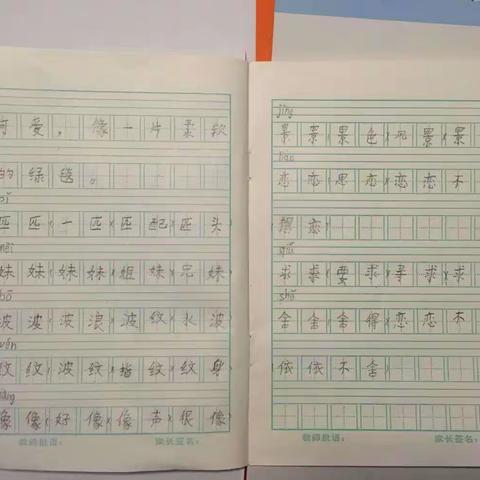 可爱，像一片柔软
的绿毯。
匹匹(一匹)(匹配)(匹头)
妹妹(妹妹)(姐妹)(兄妹)
bō
波波(波浪)(波纹)(水波)
纹纹(波纹)(指纹)(纹身)
像像(好像)(像声)(很像)
教师批语： 家长签名：
jǐng
景景(景色)(风景)(景
liàn
恋恋(思恋)(恋恋不
恋)
qiú
求求(要求)(寻求)(求
shě
舍舍(舍得)(恋恋不
依依不舍)
教师批语： 家长签名：